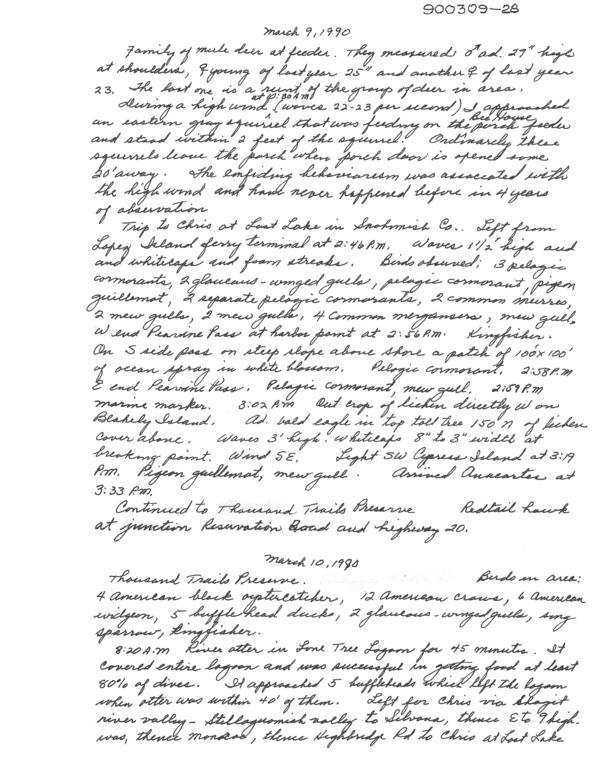 900309-28
March 9, 1990
Family of mule deer at feeder. They measured ♂ ad. 27" high
at shoulders, ♀ young of last year 25" and another ♀ of last year
23. The last one is a runt of the group of deer in area.
at 8:30 AM
During a high wind (waves 22-23 per second) I approached
Bee House
an eastern gray squirrel that was feeding on the porch feeder
and stand within 2 feet of the squirrel. Ordinarily these
squirrels leave the porch when porch door is opened some
20' away. The confiding behaviorism was associated with
the high wind and have never happened before in 4 years
of observation
Trip to Chris at Lost Lake in Snohmish Co.. Left from
Lopez Island ferry terminal at 2:46 P.M. Waves 1½' high and
and whitecaps and foam streaks. Birds observed: 3 pelagic
cormorants, 2 glaucous-winged gulls, pelagic cormorant, pigeon
guillemot, 2 separate pelagic cormorants, 2 common murres,
2 mew gulls, 2 mew gulls, 4 Common mergansers, mew gull.
W end Peavine Pass at harbor point at 2:56 P.M. Kingfisher.
On S side pass on steep slope above shore a patch of 100'x100'
of ocean spray in white blossom. Pelagic cormorant. 2:58 P.M
E end Peavine Pass. Pelagic cormorant, mew gull. 2:59 P.M
marine marker. 3:02 P.M Out crop of lichen directly W on
Blakely Island. Ad. bald eagle in top tall tree 150' N of lichen
cover above. Waves 3' high. Whitecaps 8" to 3" width at
breaking point. Wind SE. Light SW Cypress Island at 3:19
P.M. Pigeon guillemot, mew gull. Arrived Anacortes at
3:33 P.M.
Continued to Thousand Trails Preserve Redtail hawk
at junction Reservation Road and highway 20.
March 10, 1990
Thousand Trails Preserve. Birds in area:
4 American black oystercatcher, 12 American crows, 6 American
widgeon, 5 buffle head ducks, 2 glaucous-winged gulls, song
sparrow, kingfisher.
8:20 A.M River otter in Lone Tree Lagoon for 45 minutes. It
covered entire lagoon and was successful in getting food at least
80% of dives. It approached 5 buffleheads which left the lagoon
when otter was within 40' of them. Left for Chris via Skagit
river valley - Stillaquomish valley to Silvana, thence E to 9 high-
was, thence Monroe, thence Highbridge Rd to Chris at Lost Lake